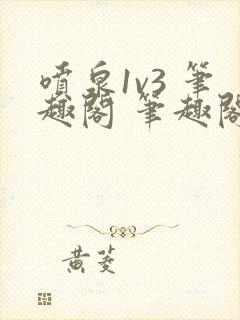 噴泉1v3 筆
趣閣 筆趣閣
黄菱